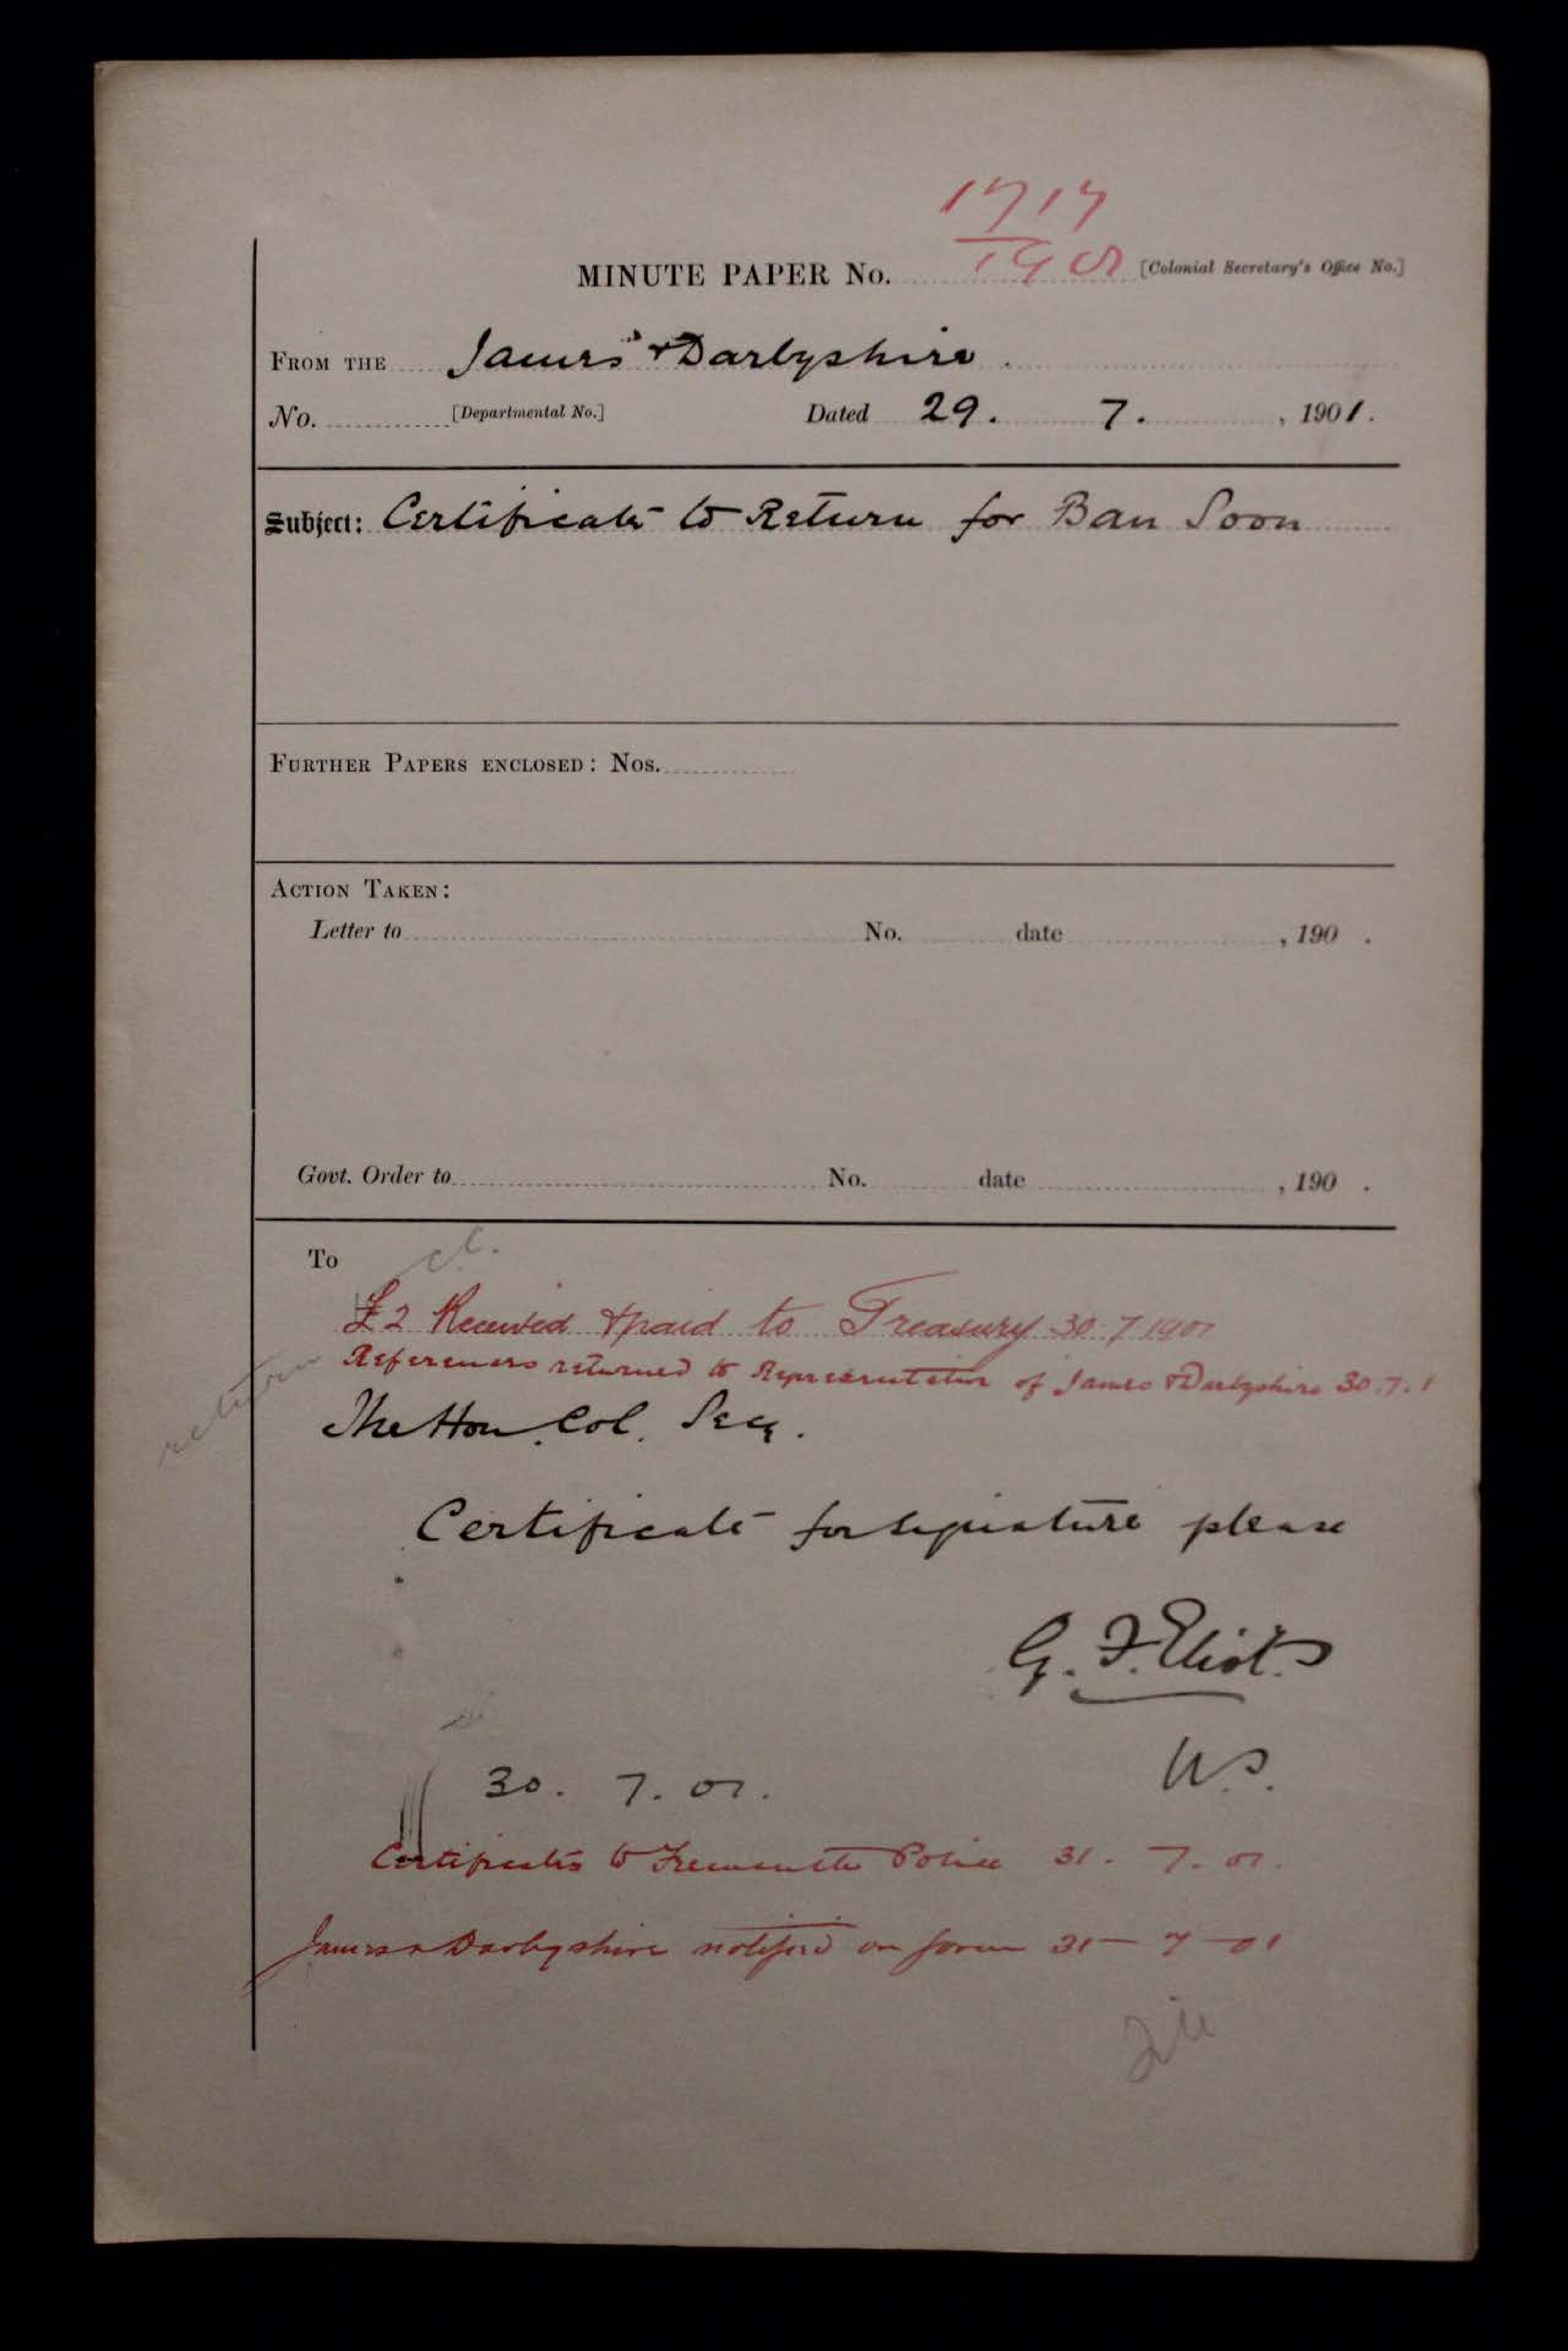 1717
MINUTE PAPER No. 1901 [Colonial Secretary's Office No.]
FROM THE James & Darbyshire.
No. [Departmental No.] Dated 29. 7. , 1901.
Subject: Certificate to Return for Ban Soon
FURTHER PAPERS ENCLOSED: Nos.
ACTION TAKEN:
Letter to No. date , 190 .
Govt. Order to No. date , 190 .
To
£2 Received & paid to Treasury 30.7.1901
References returned to Representative of James & Darbyshire 30.7.1
return
The Hon. Col. Secy.
Certificate for signature please
G. F. Eliot
30. 7. 01.
Certificates to Fremantle Police 31. 7. 01.
James & Darbyshire notified on form 31-7-01